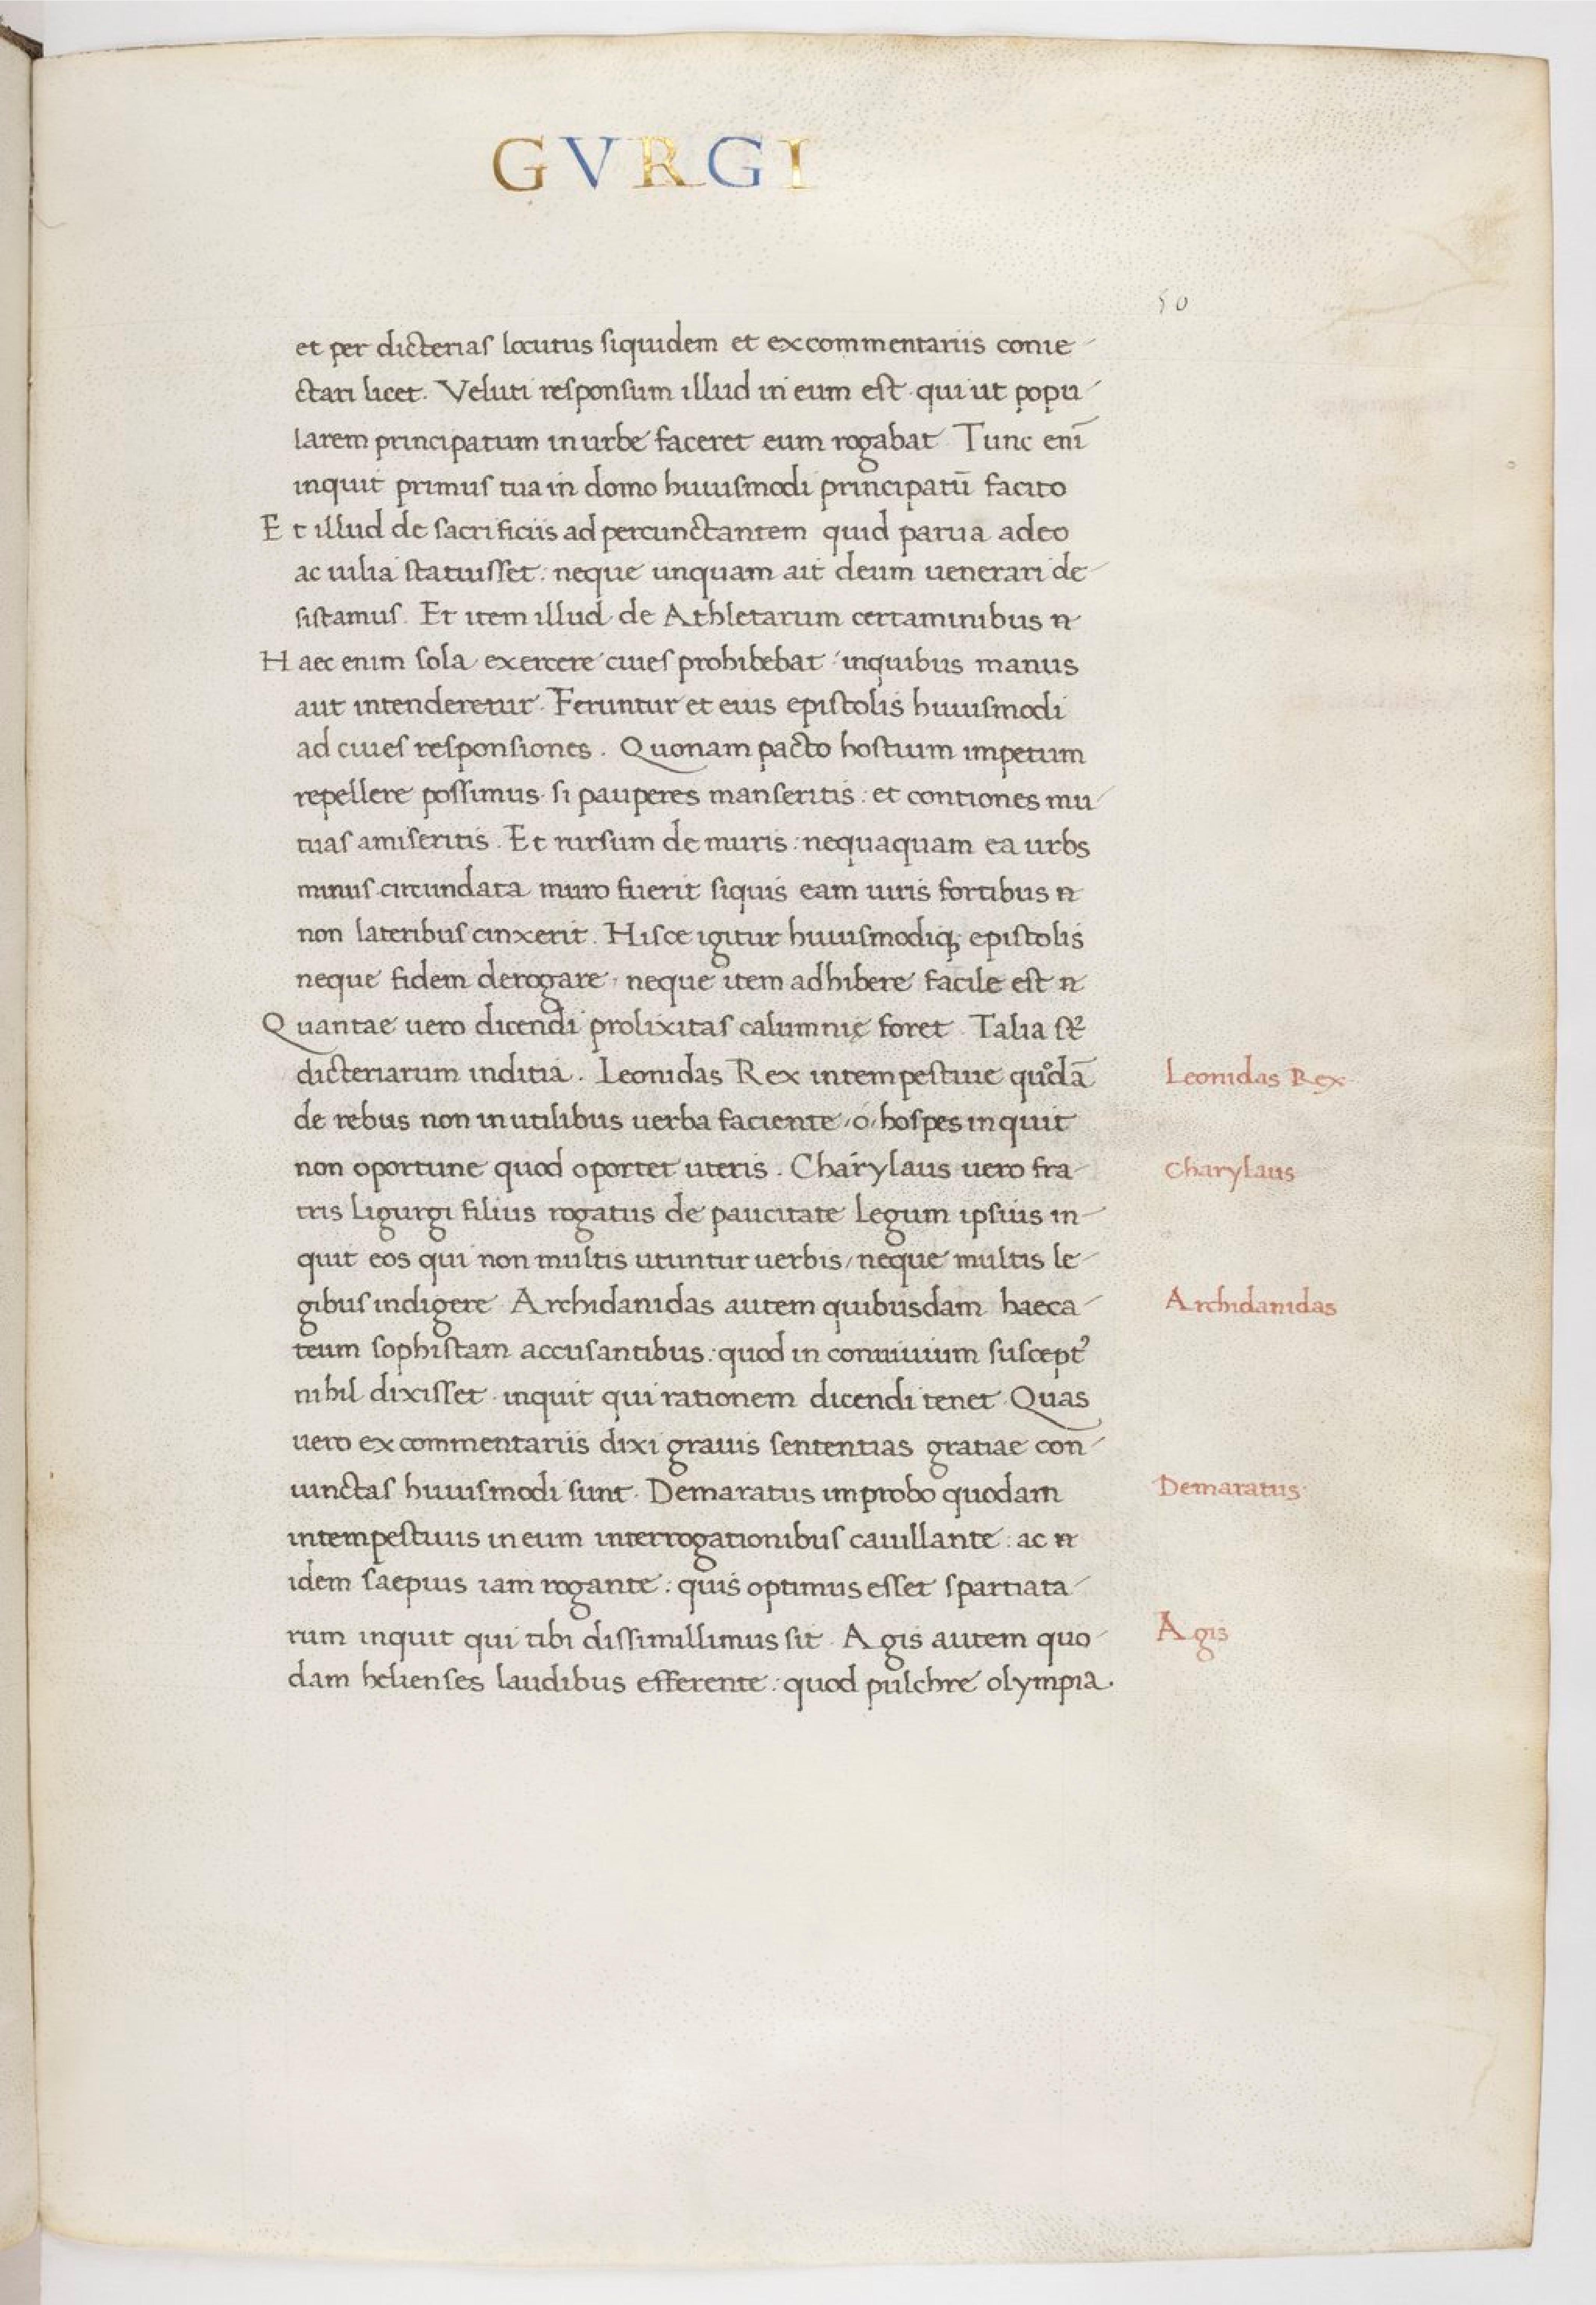 GVRGI
50
et per dicterias locutus siquidem et ex commentariis conie-
ctari licet. Veluti responsum illud in eum est qui ut popu-
larem principatum in urbe faceret eum rogabat Tunc enī
inquit primus tua in domo huiusmodi principatū facito
Et illud de sacrificiis ad percunctantem quid parua adeo
ac uilia statuisset: neque unquam ait deum uenerari de-
sistamus. Et item illud de Athletarum certaminibus
Haec enim sola exercere ciues prohibebat in quibus manus
aut intenderetur. Feruntur et eius epistolis huiusmodi
ad ciues responsiones. Quonam pacto hostium impetum
repellere possimus si pauperes manseritis: et contiones mu-
tuas amiseritis. Et rursum de muris: nequaquam ea urbs
minus circundata muro fuerit siquis eam uiris fortibus
non lateribus cinxerit. Hisce igitur huiusmodiq; epistolis
neque fidem derogare, neque item adhibere facile est
Quantae uero dicendi prolixitas calumnię foret. Talia st̄
dicteriarum inditia. Leonidas Rex intempestiue quodā
Leonidas Rex
de rebus non inutilibus uerba faciente, ó, hospes inquit
non oportune quod oportet uteris. Charylaus uero fra-
Charylaus
tris Ligurgi filius rogatus de paucitate Legum ipsius in-
quit eos qui non multis utuntur uerbis, neque multis le-
gibus indigere Archidanidas autem quibusdam haeca-
Archidanidas
teum sophistam accusantibus: quod in conuiuium suscept᾿
nihil dixisset inquit qui rationem dicendi tenet Quas
uero ex commentariis dixi grauis sententias gratiae con-
iunctas huiusmodi sunt. Demaratus improbo quodam
Demaratus
intempestiuis in eum interrogationibus cauillante: ac
idem saepius iam rogante: quis optimus esset spartiata-
rum inquit qui tibi dissimillimus sit. Agis autem quo-
Agis
dam helienses laudibus efferente: quod pulchre olympia.